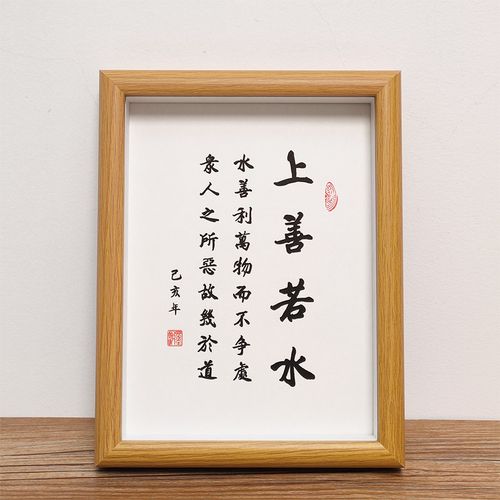 上善若水
水善利萬物而不争處
衆人之所惡故幾於道
己亥年